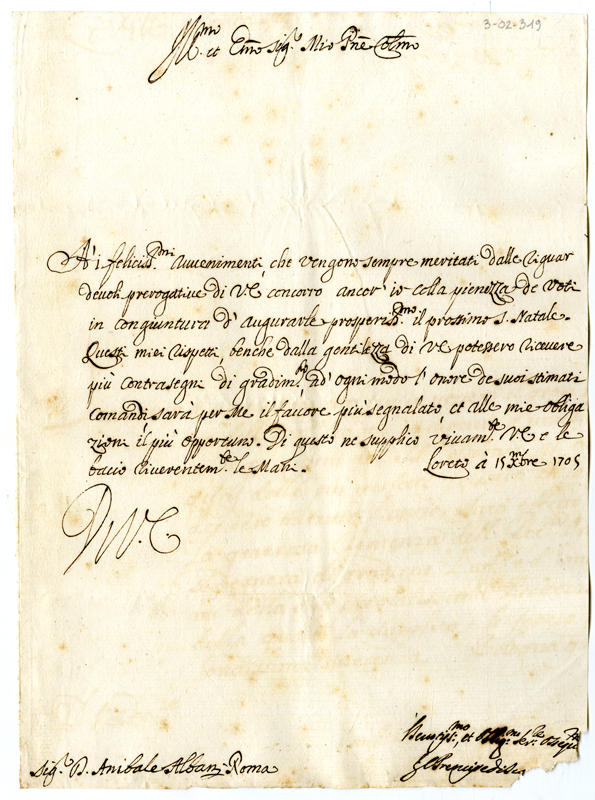 3-02-319
Ill.mo et Emo Sig.r Mio Pne Colmo
A' i feliciss.mi Avvenimenti, che vengono sempre meritati dalle riguar
devoli prerogative di V.E. concorro ancor' io colla pienezza de Voti
in congiuntura d' augurarle prosperiss.mo il prossimo S. Natale.
Questi miei rispetti, benche dalla gentilezza di VE potessero ricevere
più contrasegni di gradim.to ad' ogni modo l' onore de suoi stimati
comandi sarà per me il favore più segnalato, et alle mie obliga
zioni il più opportuno. Di questo ne supplico vivam.te VE e le
bacio riverentem.te le Mani.
Loreto à 15 Xmbre 1705
D V.E.
Sig.r D. Anibale Albani Roma